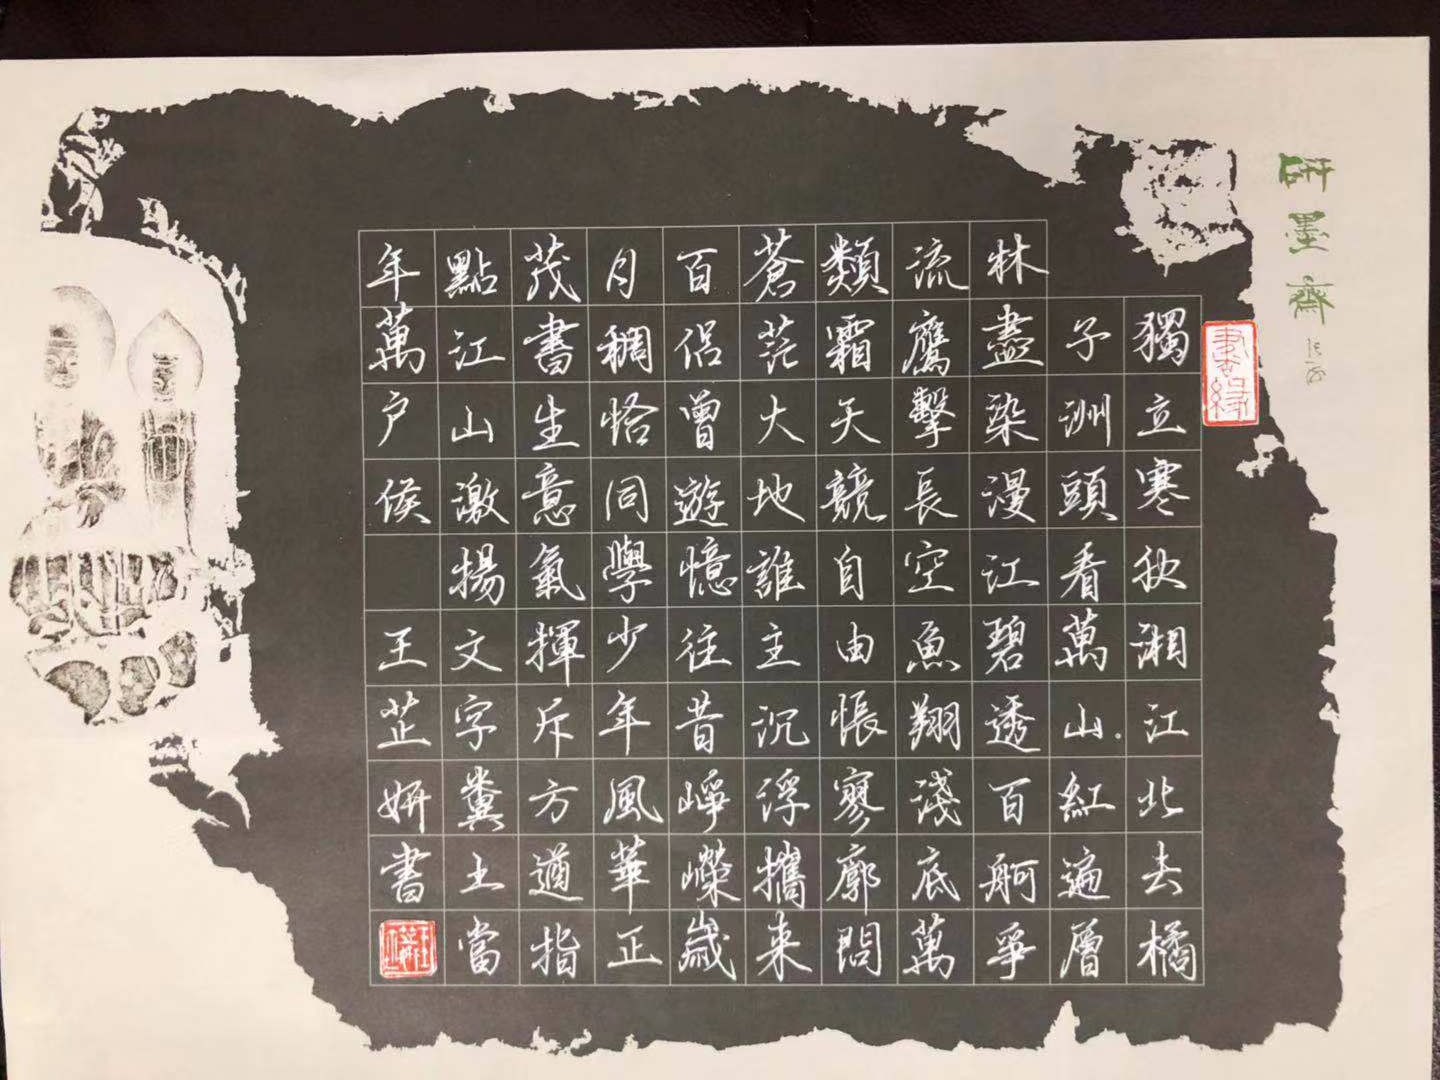 研墨齋
書緣
獨立寒秋湘江北去橘
子洲頭看萬山紅遍層
林盡染漫江碧透百舸爭
流鷹擊長空魚翔淺底萬
類霜天競自由悵寥廓問
蒼茫大地誰主沉浮攜来
百侶曾遊憶往昔崢嶸歲
月稠恰同學少年風華正
茂書生意氣揮斥方遒指
點江山激揚文字糞土當
年萬戶侯 王芷妍書